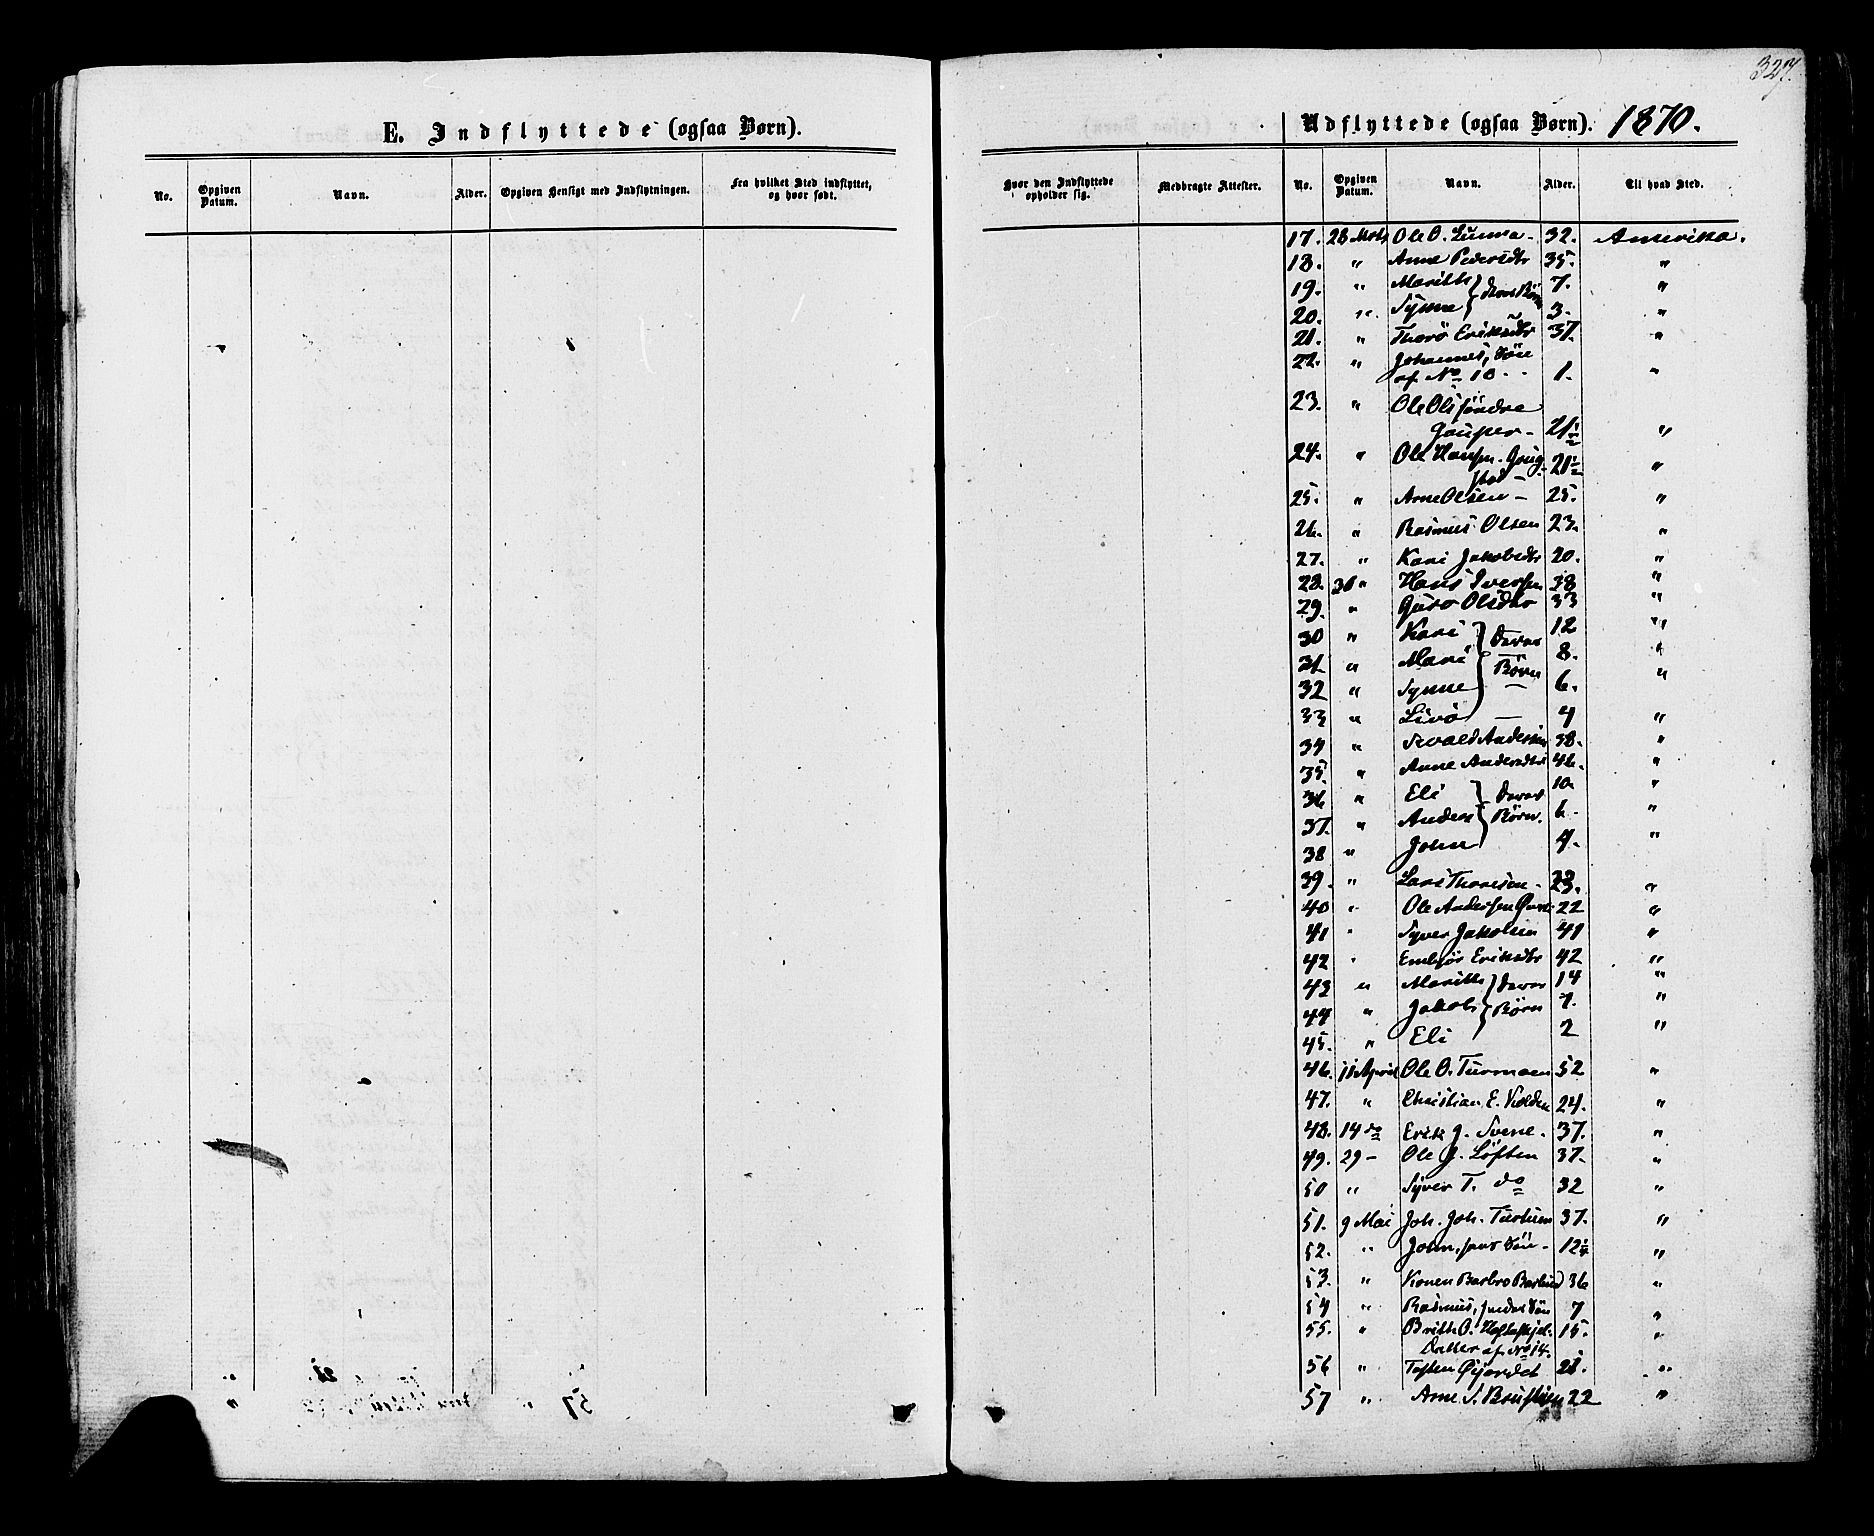 327.
E. Indflyttede (ogsaa Børn).
No.
Opgiven Datum.
Navn.
Alder.
Opgiven Hensigt med Indflytningen.
Fra hvilket Sted indflyttet, og hvor født.
Udflyttede (ogsaa Børn). 1870.
Hvor den Indflyttede opholder sig.
Medbragte Attester.
No.
Opgiven Datum.
Navn.
Alder.
Til hvad Sted.
17. 28 Mots Ole O. Lunna - 32. Amerika.
18. " Anne Pedersdtr 35. "
19. " Marith 7. "
deres Børn
20. " Synne 3. "
21. " Thorø Eriksdtr 37. "
22. " Johannes, Søn
af No 10 - - 1. "
23. " Ole Ols søndre
Gauper - 21½ "
24. " Ole Hansen Goug-
stad - 21½ "
25. " Arne Olsen - 25. "
26. " Rasmus Olsen 23. "
27. " Kari Jakobsdtr 20. "
28. 30 " Hans Iversen 38 "
29. " Guro Olsdtr 33 "
30 " Kari 12 "
Deres
31. " Mari 8. "
Børn
32 " Synne 6. "
33 " Livø 4 "
34 " Sivald Andersen 38. "
35. " Anne Andersdtr 46. "
36 " Eli Deres 10. "
37. " Anders Børn. 6. "
38 " John 4. "
39. " Lars Thoresen - 23. "
40 " Ole Andersen 22 "
41 " Syver Jakobsen 41 "
42 " Embjør Eriksdtr 42 "
43 " Marith Deres 14 "
44 " Jakob Børn 7. "
45. " Eli 2 "
46. 11 April Ole O. Turmoen 52 "
47. " Christian E. Kolden 24. "
48. 14 do Erik J. Svene. 37. "
49. 29 - Ole J. Løften 37. "
50 " Syver T. do 32 "
51. 9 Mai Joh. Joh. Turtum 37. "
52. " John, hans Søn - 12¼ "
53. " Konen Barbro 36 "
54 " Rasmus, hendes Søn 7 "
55. " Brith O. 15. "
Datter af No 14.
56 " Tosten Øijordet 21. "
57 " Arne S. 22 "